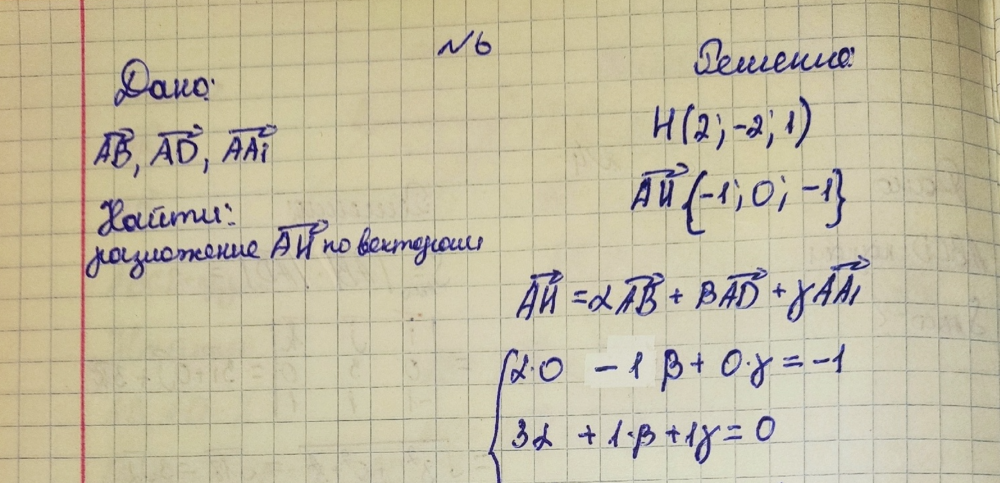 №6
Дано:
AB, AD, AA₁
Найти:
разложение AH по векторам
Решение:
H(2; -2; 1)
AH {-1; 0; -1}
AH = αAB + βAD + γAA₁
α·0 - 1β + 0·γ = -1
3α + 1·β + 1γ = 0